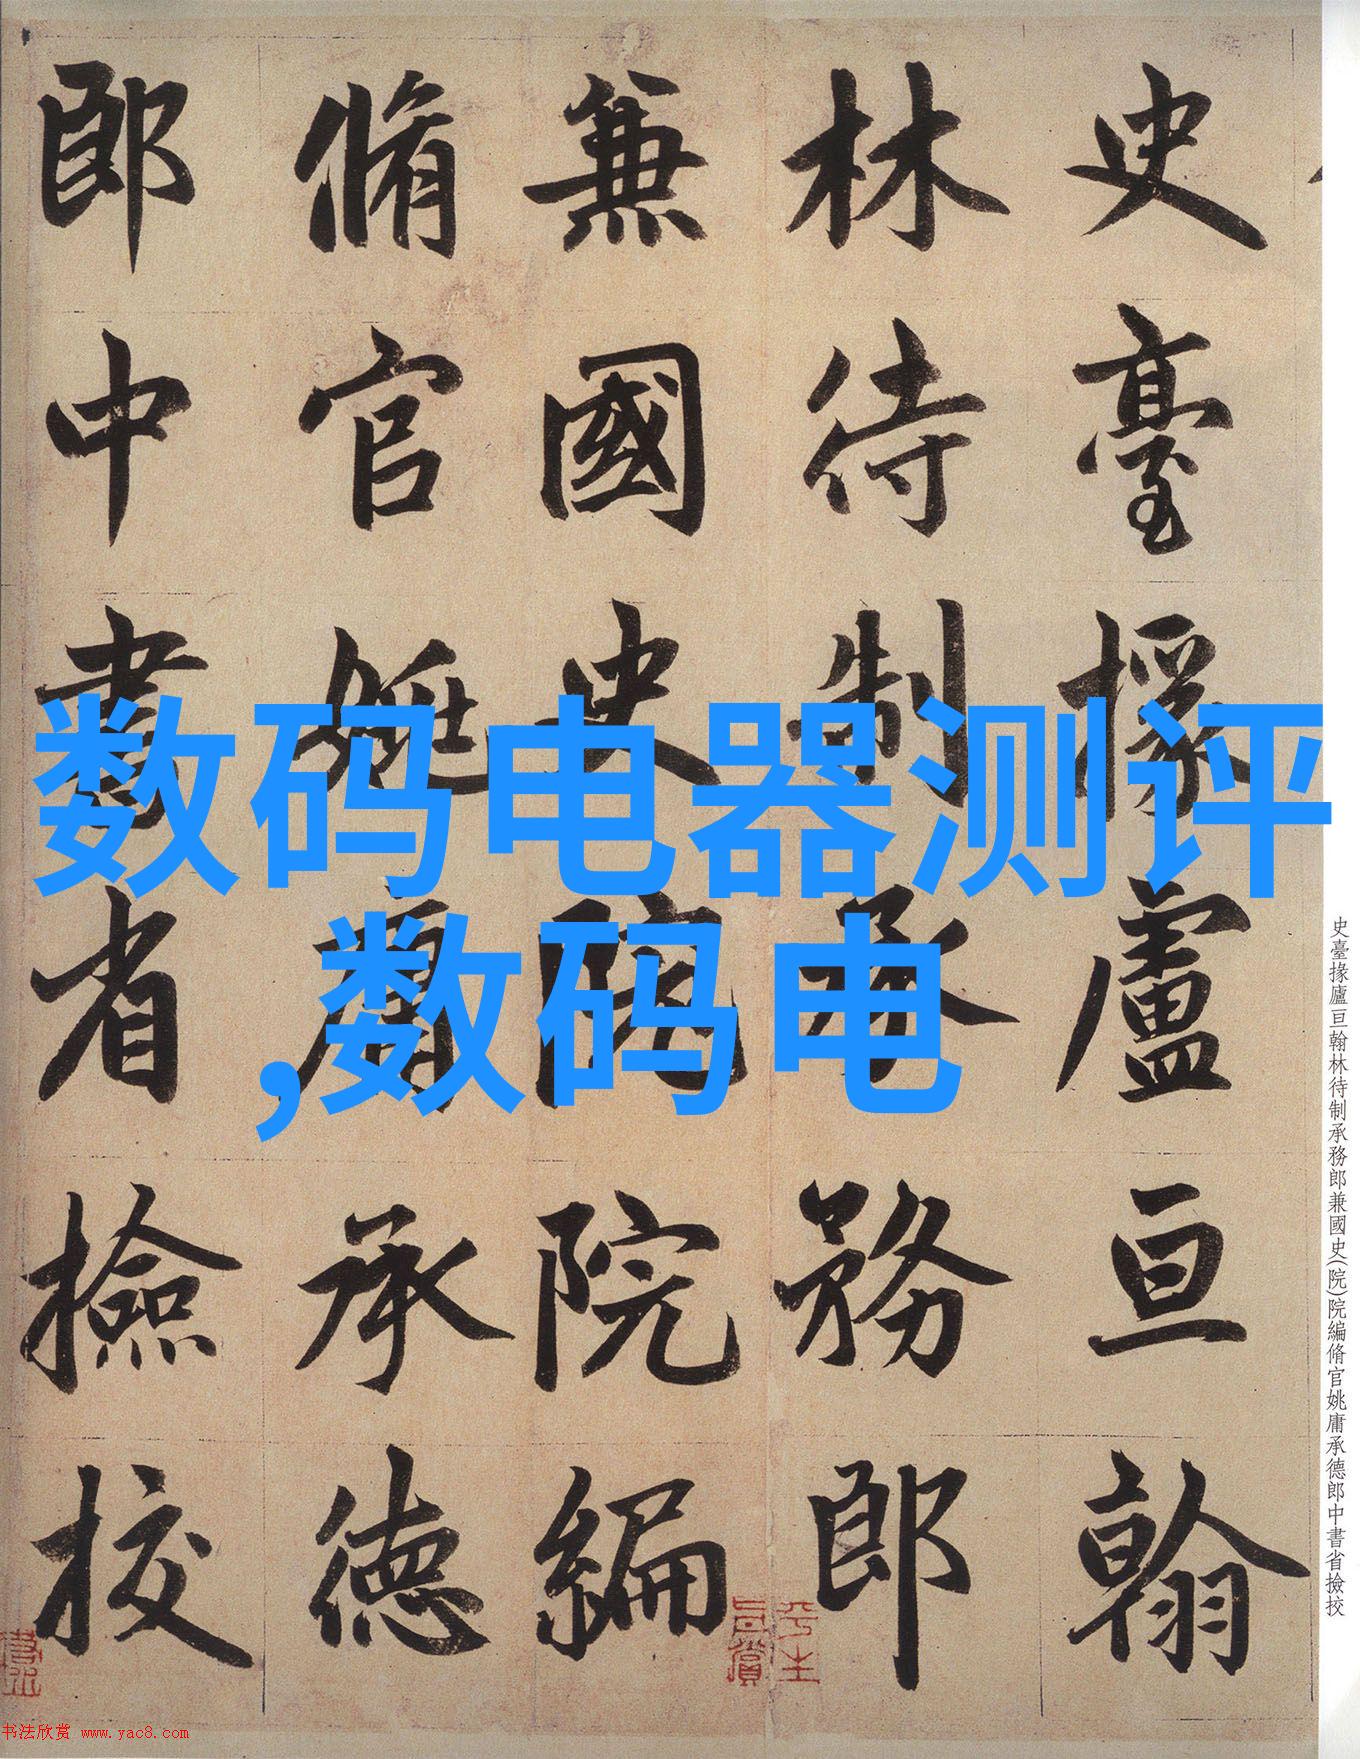 史臺掾盧亘翰
林待制承務郎
兼國史院院編
脩官姚庸承德
郎中書省撿挍
数码电器测评
,数码电
史臺掾廬亘翰林待制承務郎兼國史(院)院編脩官姚庸承德郎中書省撿挍
平生
书法欣赏 www.yac8.com